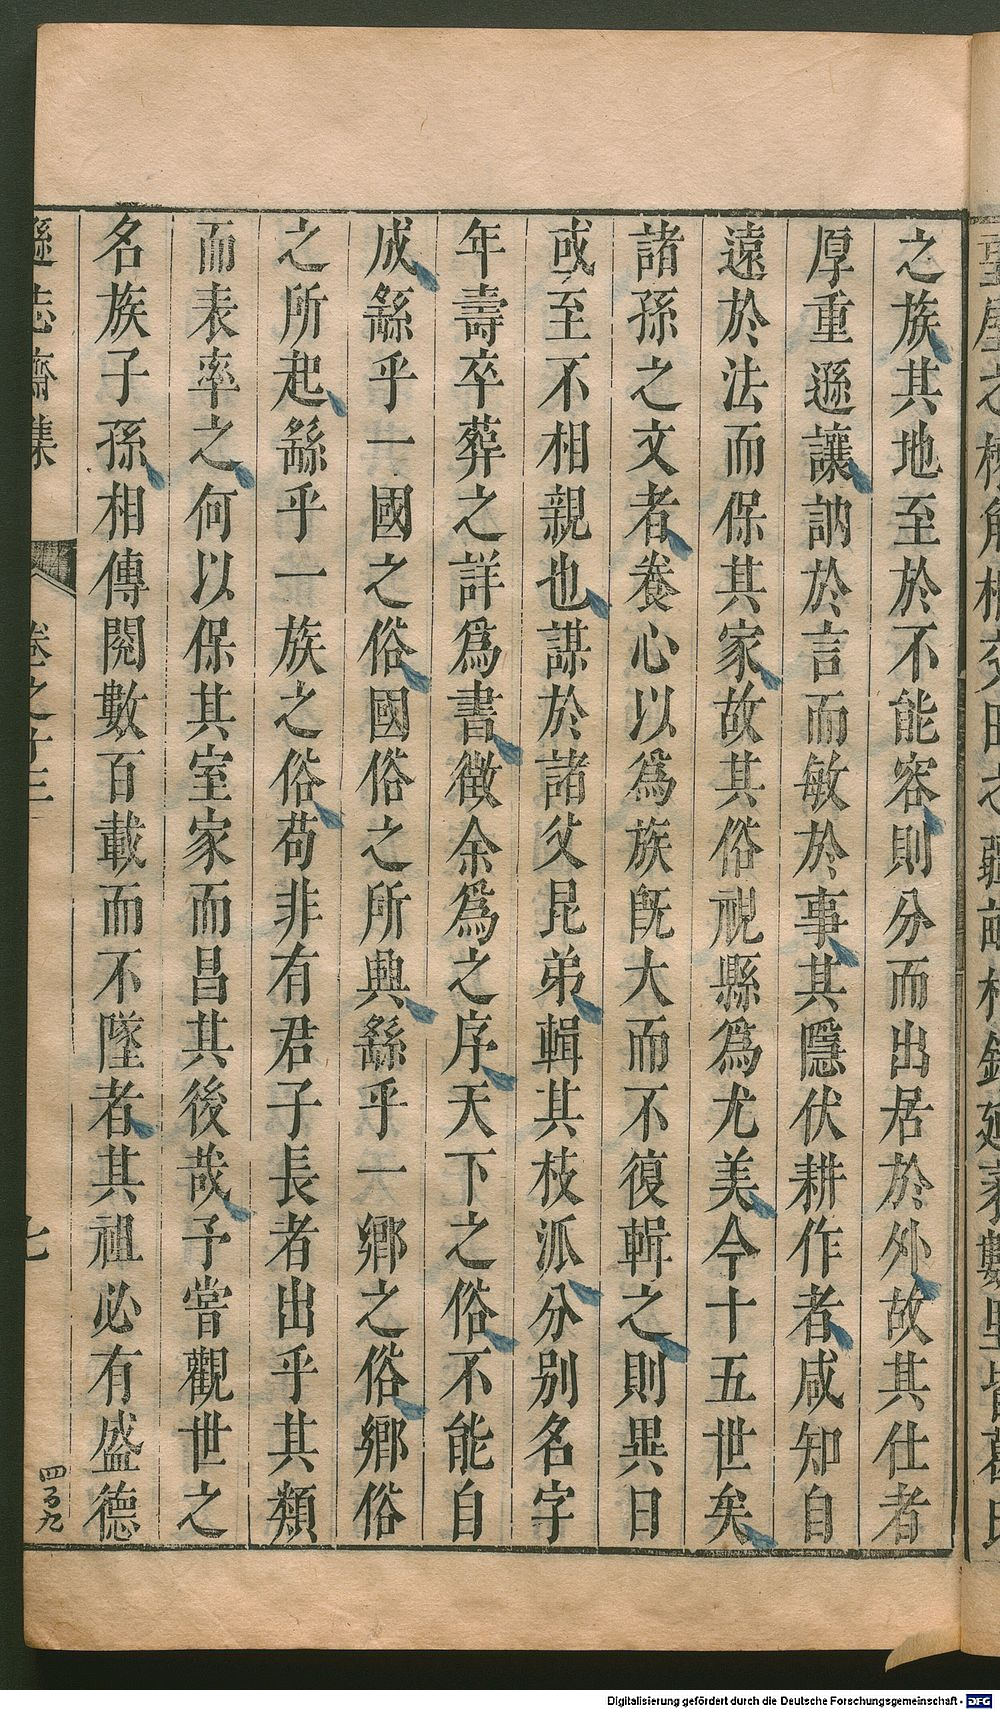 之族其地至於不能容則分而出居於外故其仕者
厚重遜讓訥於言而敏於事其隱伏耕作者咸知自
遠於法而保其家故其俗視縣爲尤美今十五世矣
諸孫之文者養心以爲族旣大而不復輯之則異日
或至不相親也謀於諸父昆弟輯其枝派分別名字
年壽卒葬之詳爲書徵余爲之序天下之俗不能自
成繇乎一國之俗國俗之所興繇乎一鄉之俗鄉俗
之所起繇乎一族之俗苟非有君子長者出乎其類
而表率之何以保其室家而昌其後哉予嘗觀世之
名族子孫相傳閱數百載而不墜者其祖必有盛德
遜志齋集 卷之十三 七
Digitalisierung gefördert durch die Deutsche Forschungsgemeinschaft - DFG